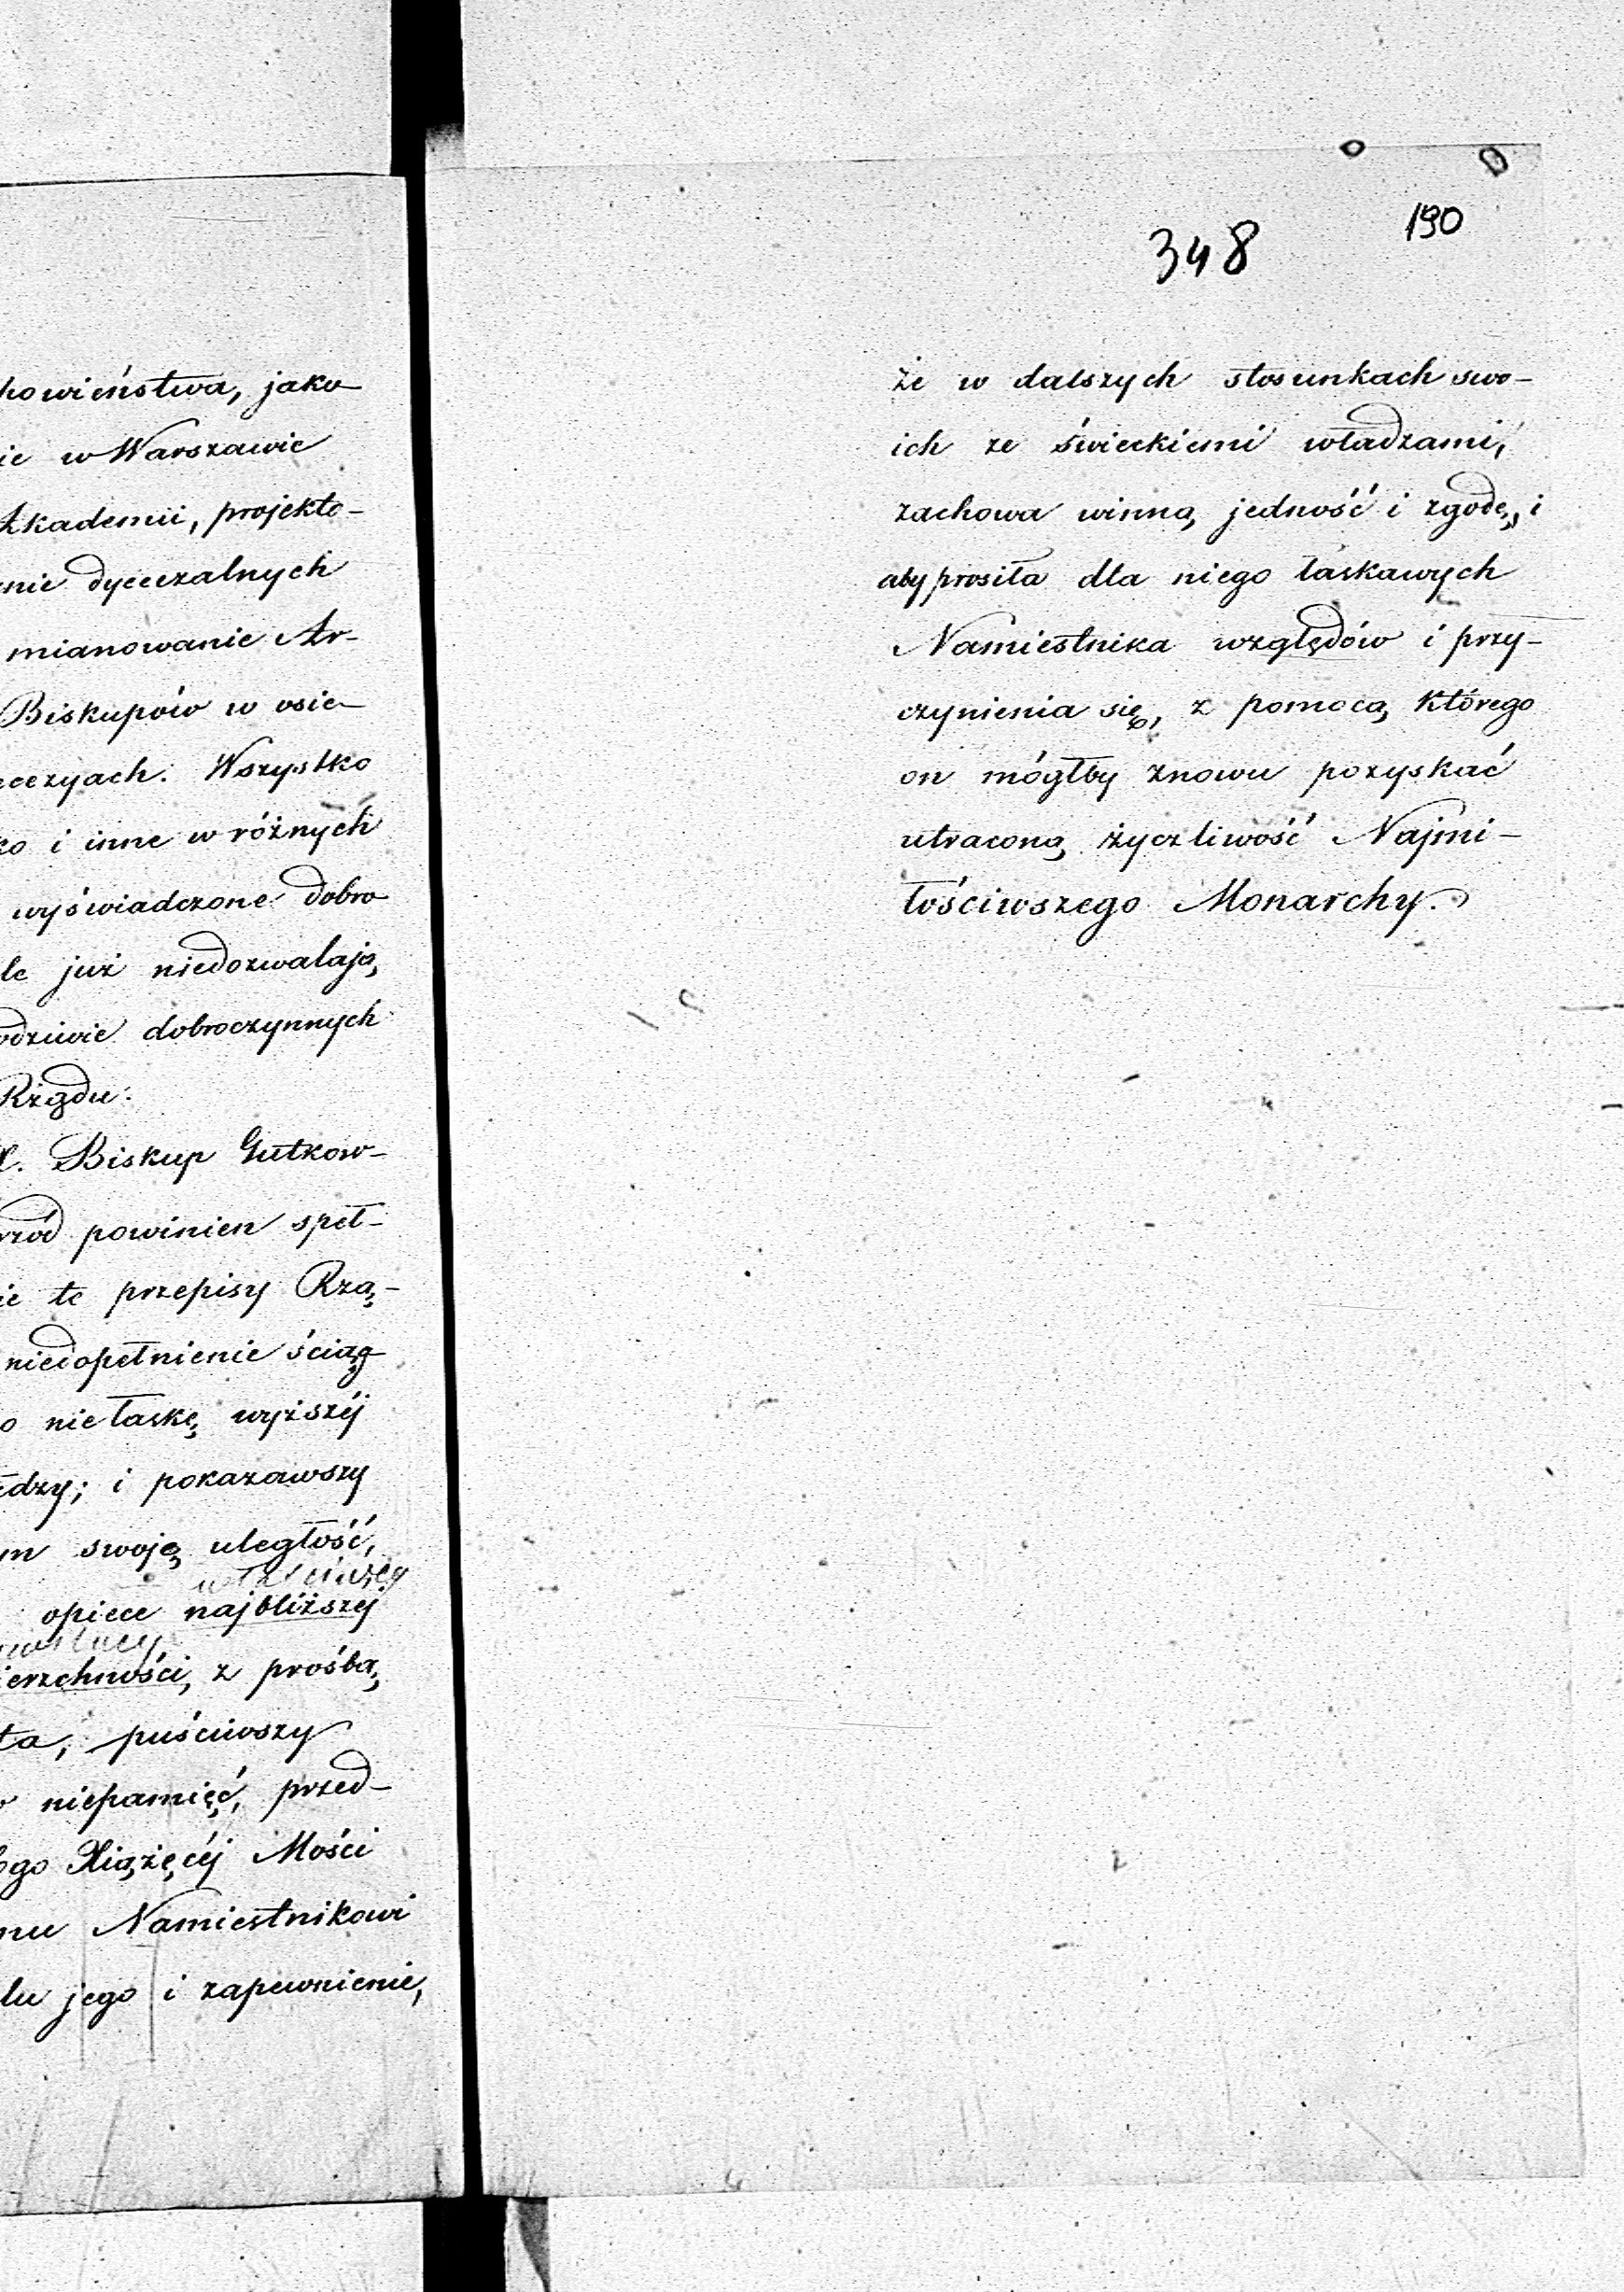 howieństwa, jako
ie w Warszawie
Akademii, projekto-
nie dyecezalnych
mianowanie Ar-
Biskupów w osie-
ecezyach. Wszystko
ko i inne w różnych
wyświadczone dobro
le już niedozwalają,
odziwie dobroczynnych
Rządu.
X. Biskup Gutkow-
rzód powinien speł-
ie te przepisy Rzą-
niedopełnienie ściąg
o niełaskę wyższéj
adzy; i pokazawszy
m swoję uległość,
opiece najbliższej
ierzchności, z prośbą,
ta, puściwszy
w niepamięć, przed-
Jego Xiążęcéj Mości
mu Namiestnikowi
lu jego i zapewnienie,
348
190
że w dalszych stosunkach swo-
ich ze świeckiemi władzami,
zachowa winną jedność i zgodę, i
aby prosiła dla niego łaskawych
Namiestnika względów i przy-
czynienia się, z pomocą którego
on mógłby znowu pozyskać
utraconą życzliwość Najmi-
łościwszego Monarchy.